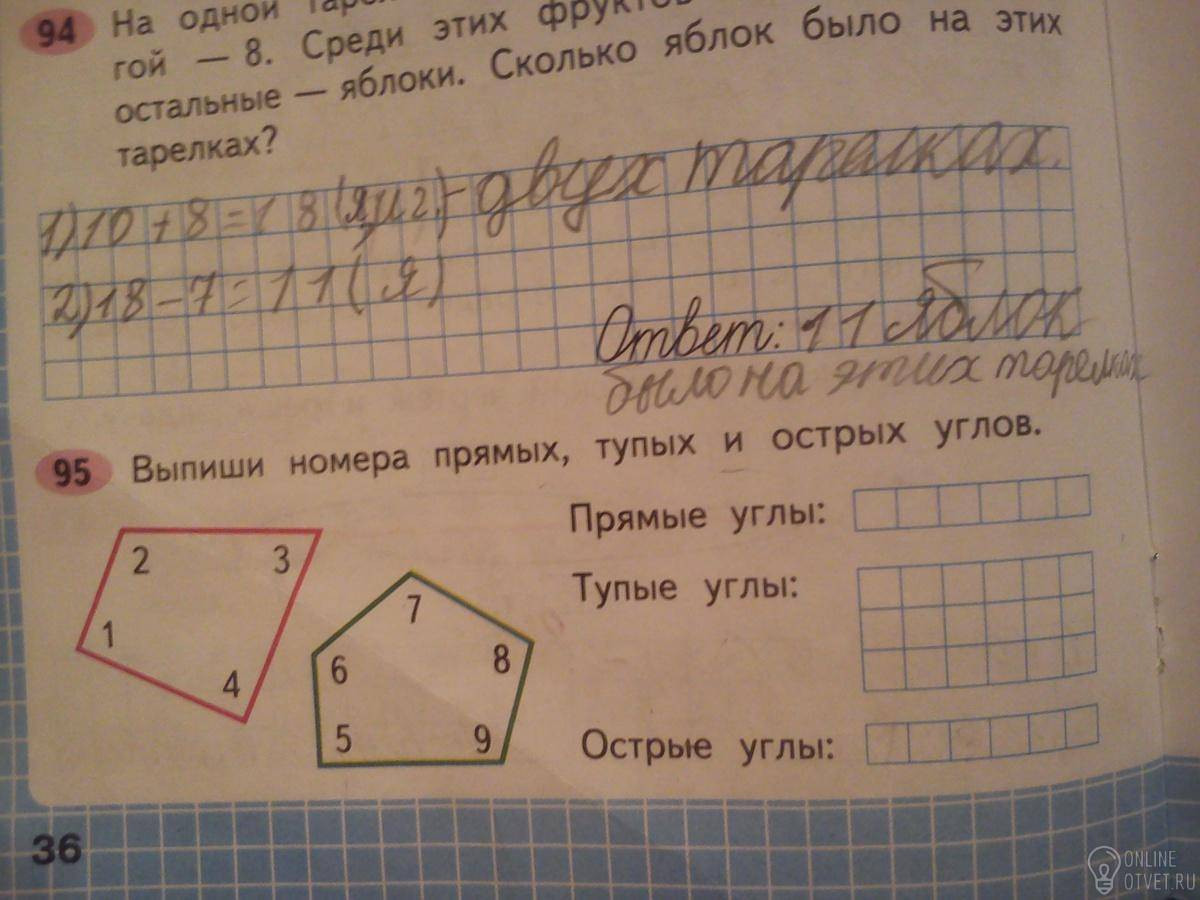 94 На одной
гой — 8. Среди этих фруктов
остальные — яблоки. Сколько яблок было на этих
тарелках?
1) 10 + 8 = 18 (я. и г.) - двух тарелках.
2) 18 - 7 = 11 ( Я )
Ответ: 11 яблок
было на этих тарелках
95 Выпиши номера прямых, тупых и острых углов.
Прямые углы:
Тупые углы:
Острые углы:
2 3
1
4
7
6 8
5 9
36
ONLINE
OTVET.RU